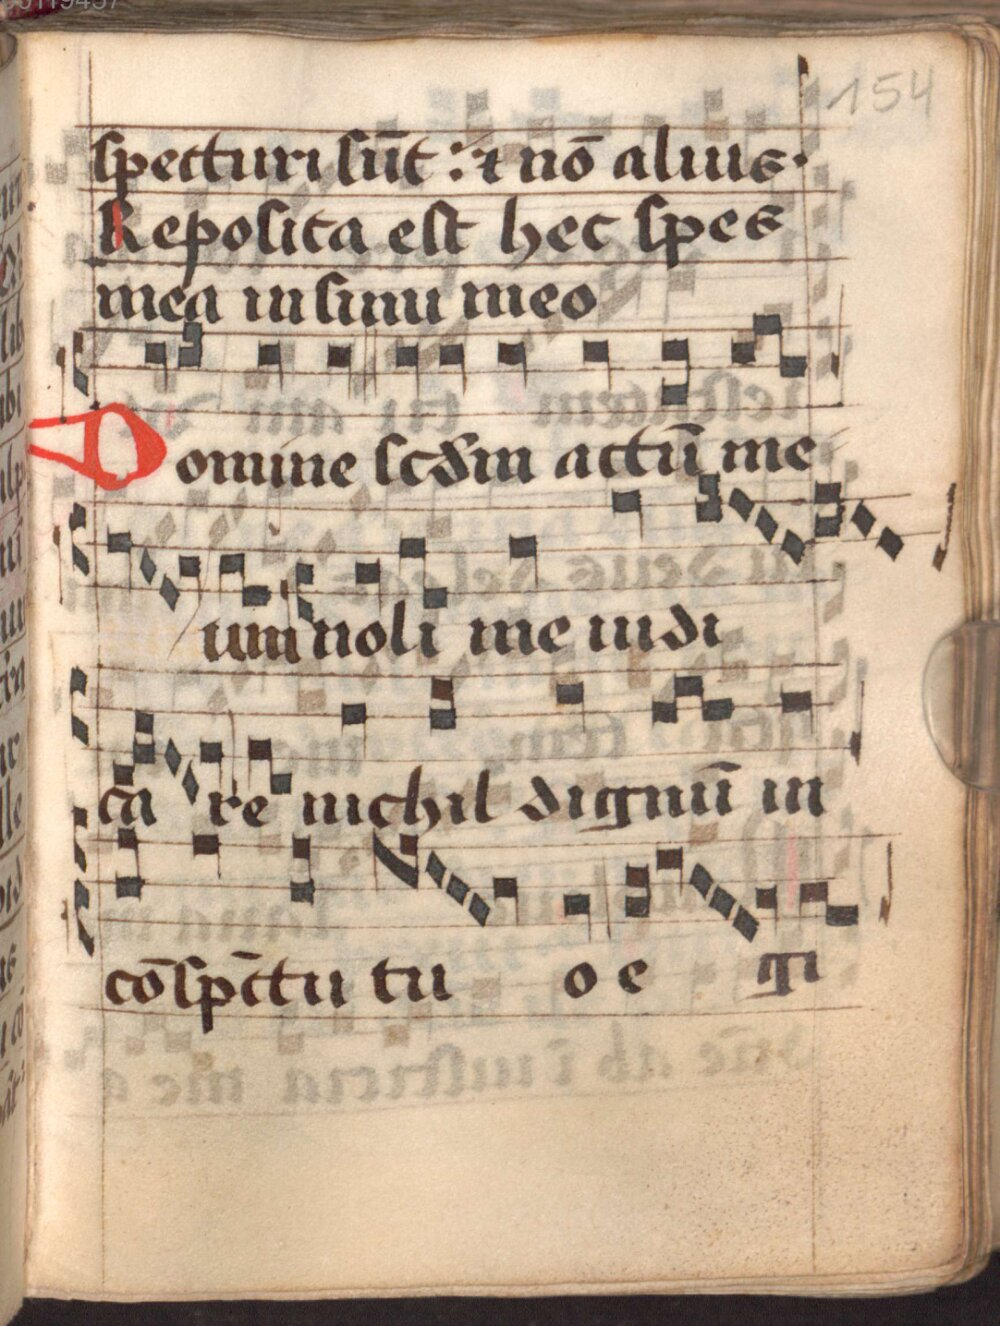 00119457
154
specturi sūt : ⁊ nō alius ·
Reposita est hec spes
mea in sinu meo
Domine scdm actū me
um noli me iudi
ca re nichil dignū in
cōspctu tu o e gi